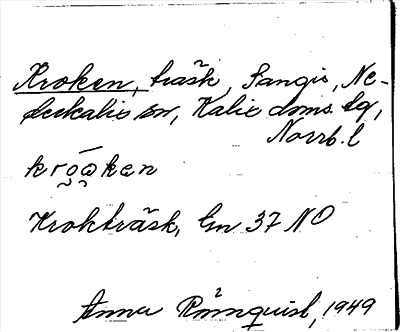 Kroken, träsk, Sangis, Ne-
derkalix sn, Kalix doms. lg,
Norrb. l
kroaken
Krokträsk, Gn 37 NO
Anna Rönnquist, 1949